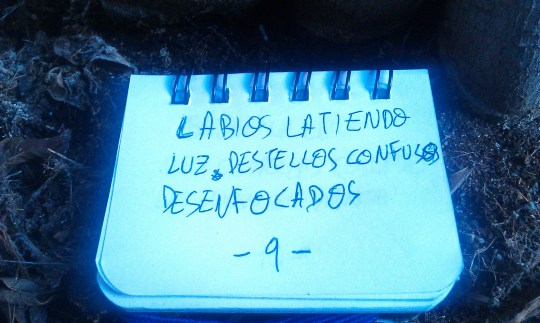 LABIOS LATIENDO
LUZ. DESTELLOS CONFUSOS
DESENFOCADOS
- 9 -